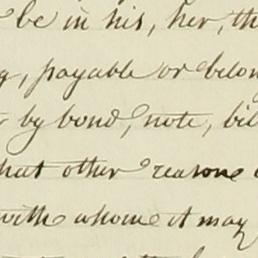 be in his, her, th
g, payable or belon
by bond, note, bil
hat other reasone
with whome it may